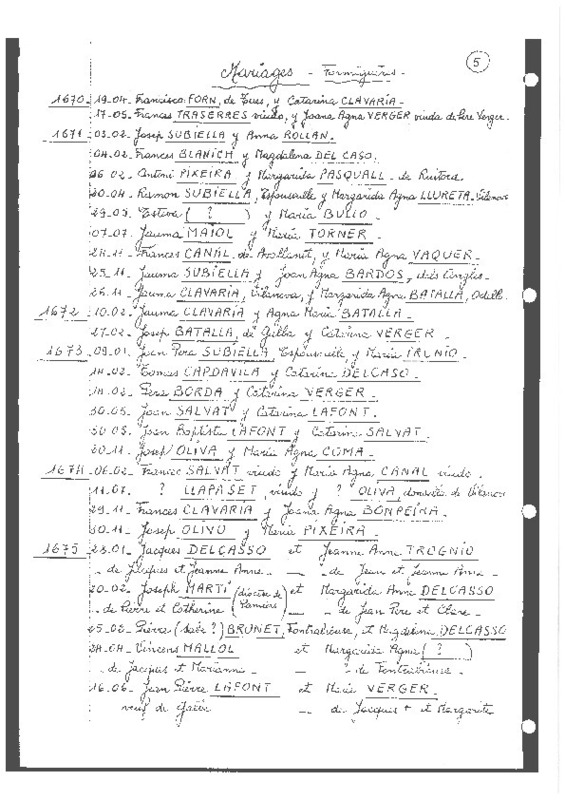 5
Mariages - Formiguères -
1670 - 19-04 - Francisco FORN, de , y Catarina CLAVARIA -
17-05 - Frances TRASERRES viudo, y Joana Agna VERGER viuda de Pere Verger.
1671 - 03-02 - Josep SUBIELLA y Anna ROLLAN.
04-02 - Frances BLANICH y Magdalena DEL CASO.
06-02 - Antoni PIXEIRA y Margarida PASQUALL - de
20-04 - Ramon SUBIELLA, Espousouille, y Margarida Agna LLURETA - Vilanova
29-05 - Esteva ( ? ) y Maria BULLO -
07-07 - Jauma MAIOL y Maria TORNER -
24-11 - Frances CANAL, de Avallanet, y Maria Agna VAQUER -
25-11 - Jauma SUBIELLA y Joan Agna BARDOS, Angles -
26-11 - Jauma CLAVARIA, Vilanova, y Margarida Agna BATALLA, Odello.
1672 - 10-02 - Jauma CLAVARIA y Agna Maria BATALLA -
27-02 - Josep BATALLA, de Gilba y Catarina VERGER -
1673 - 09-01 - Joan Pera SUBIELLA, Espousouille, y Maria
14-02 - Tomas CAPDAVILA y Catarina DELCASO -
14-02 - Pera BORDA y Catarina VERGER -
30-05 - Joan SALVAT y Catarina LAFONT.
30-05 - Joan Baptista LAFONT y Catarina SALVAT -
20-11 - Josep OLIVA y Maria Agna COMA -
1674 - 06-02 - Frances SALVAT viudo y Maria Agna CANAL viuda.
11-07 - ? LLAPASET, viudo y ? OLIVA, de Vilanova
29-11 - Frances CLAVARIA y Joana Agna BONPEIRA -
30-11 - Josep OLIVO y Maria PIXEIRA -
1675 - 23-01 - Jacques DELCASSO et Jeanne Anne TROGNIO
- de Jacques et Jeanne Anne - - de Jean et Jeanne Anna -
20-02 - Joseph MARTI (diocèse de Pamiers) et Margarida Anna DELCASSO
- de Pierre et Catherine - de Jean Pere et Clare -
25-02 - Pierre ( ?) BRUNET, Fontrabiouse, et Magdeleine DELCASSO
24-04 - Vincens MALLOL et Margarida Agna ( ? )
- de Jacques et Marianne - ? de Fontrabiouse -
16-06 - Jean Pierre LAFONT et Marie VERGER -
veuf de -- de Jacques + et Margarita